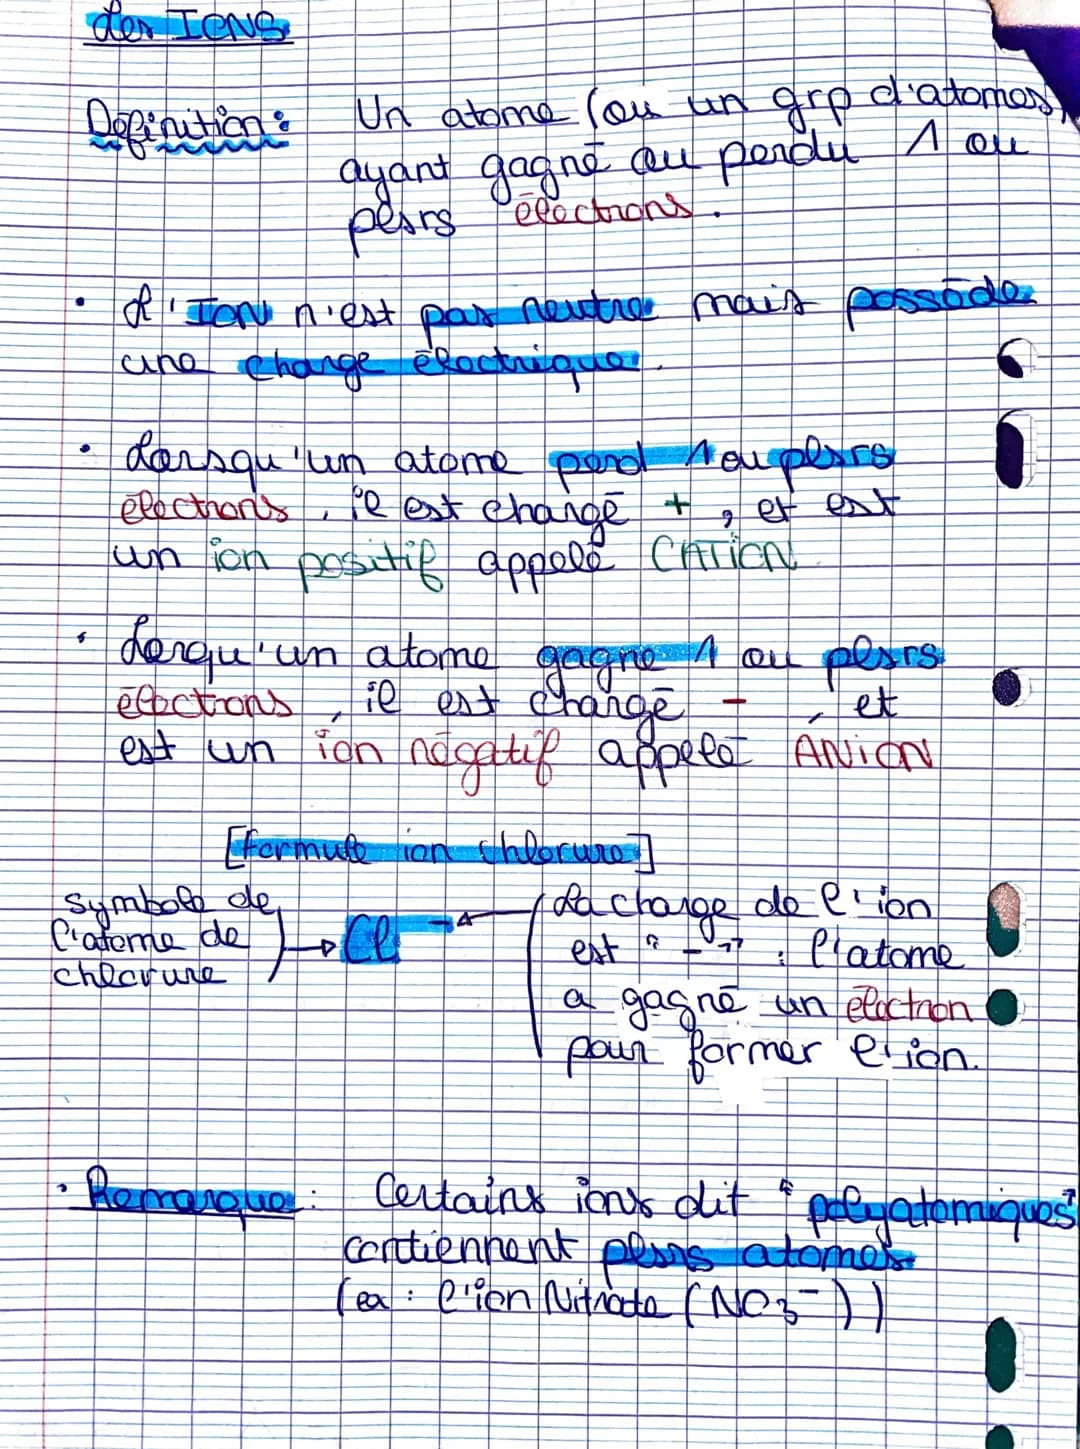 Les IONS
Définition : Un atome (ou un grp d'atomes)
ayant gagné ou perdu 1 ou
plsrs électrons.
• L'ION n'est pas neutre mais possède
une charge électrique.
• Lorsqu'un atome perd 1 ou plsrs
électrons, il est chargé +, et est
un ion positif appelé CATION
• Lorqu'un atome gagne 1 ou plsrs
électrons, il est chargé -, et
est un ion négatif appelé ANION
[formule ion chlorure]
symbole de
l'atome de
chlorure
Cl⁻
La charge de l'ion
est "-" : l'atome
a gagné un électron
pour former l'ion.
• Remarque : Certains ions dit "polyatomiques"
contiennent plsrs atomes
(ex : l'ion Nitrate (NO₃⁻))